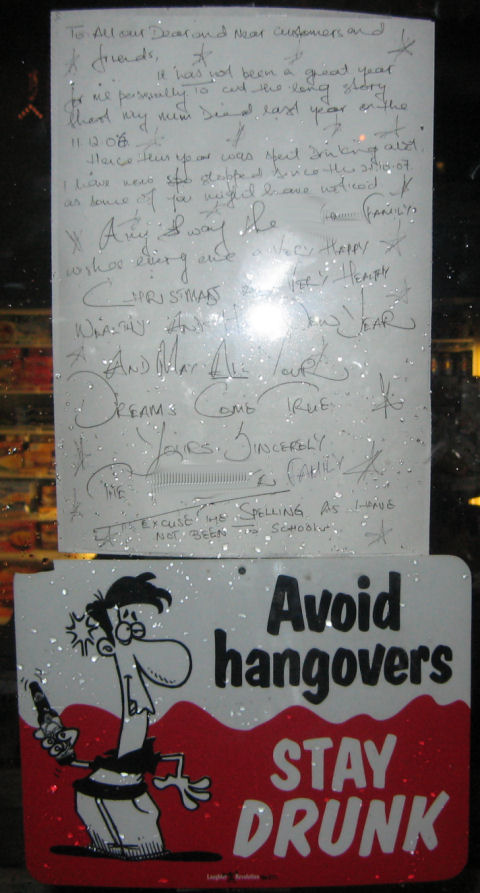 To All our Dear and Near customers and
friends,
It has not been a great year
for me personally to cut the long story
short my mum Died last year on the
11.12.06
Hence this year was spent Drinking alot.
I have now stopped since the 07.
as some of you might have noticed
Any way the FAMILY
wishes every one a VERY HAPPY
CHRISTMAS VERY HEALTHY
WEALTHY AND NEW YEAR
AND MAY ALL YOUR
DREAMS COME TRUE
YOURS SINCERELY
THE FAMILY
EXCUSE THE SPELLING AS I HAVE
NOT BEEN TO SCHOOL
Avoid
hangovers
STAY
DRUNK
Laughter Revolution